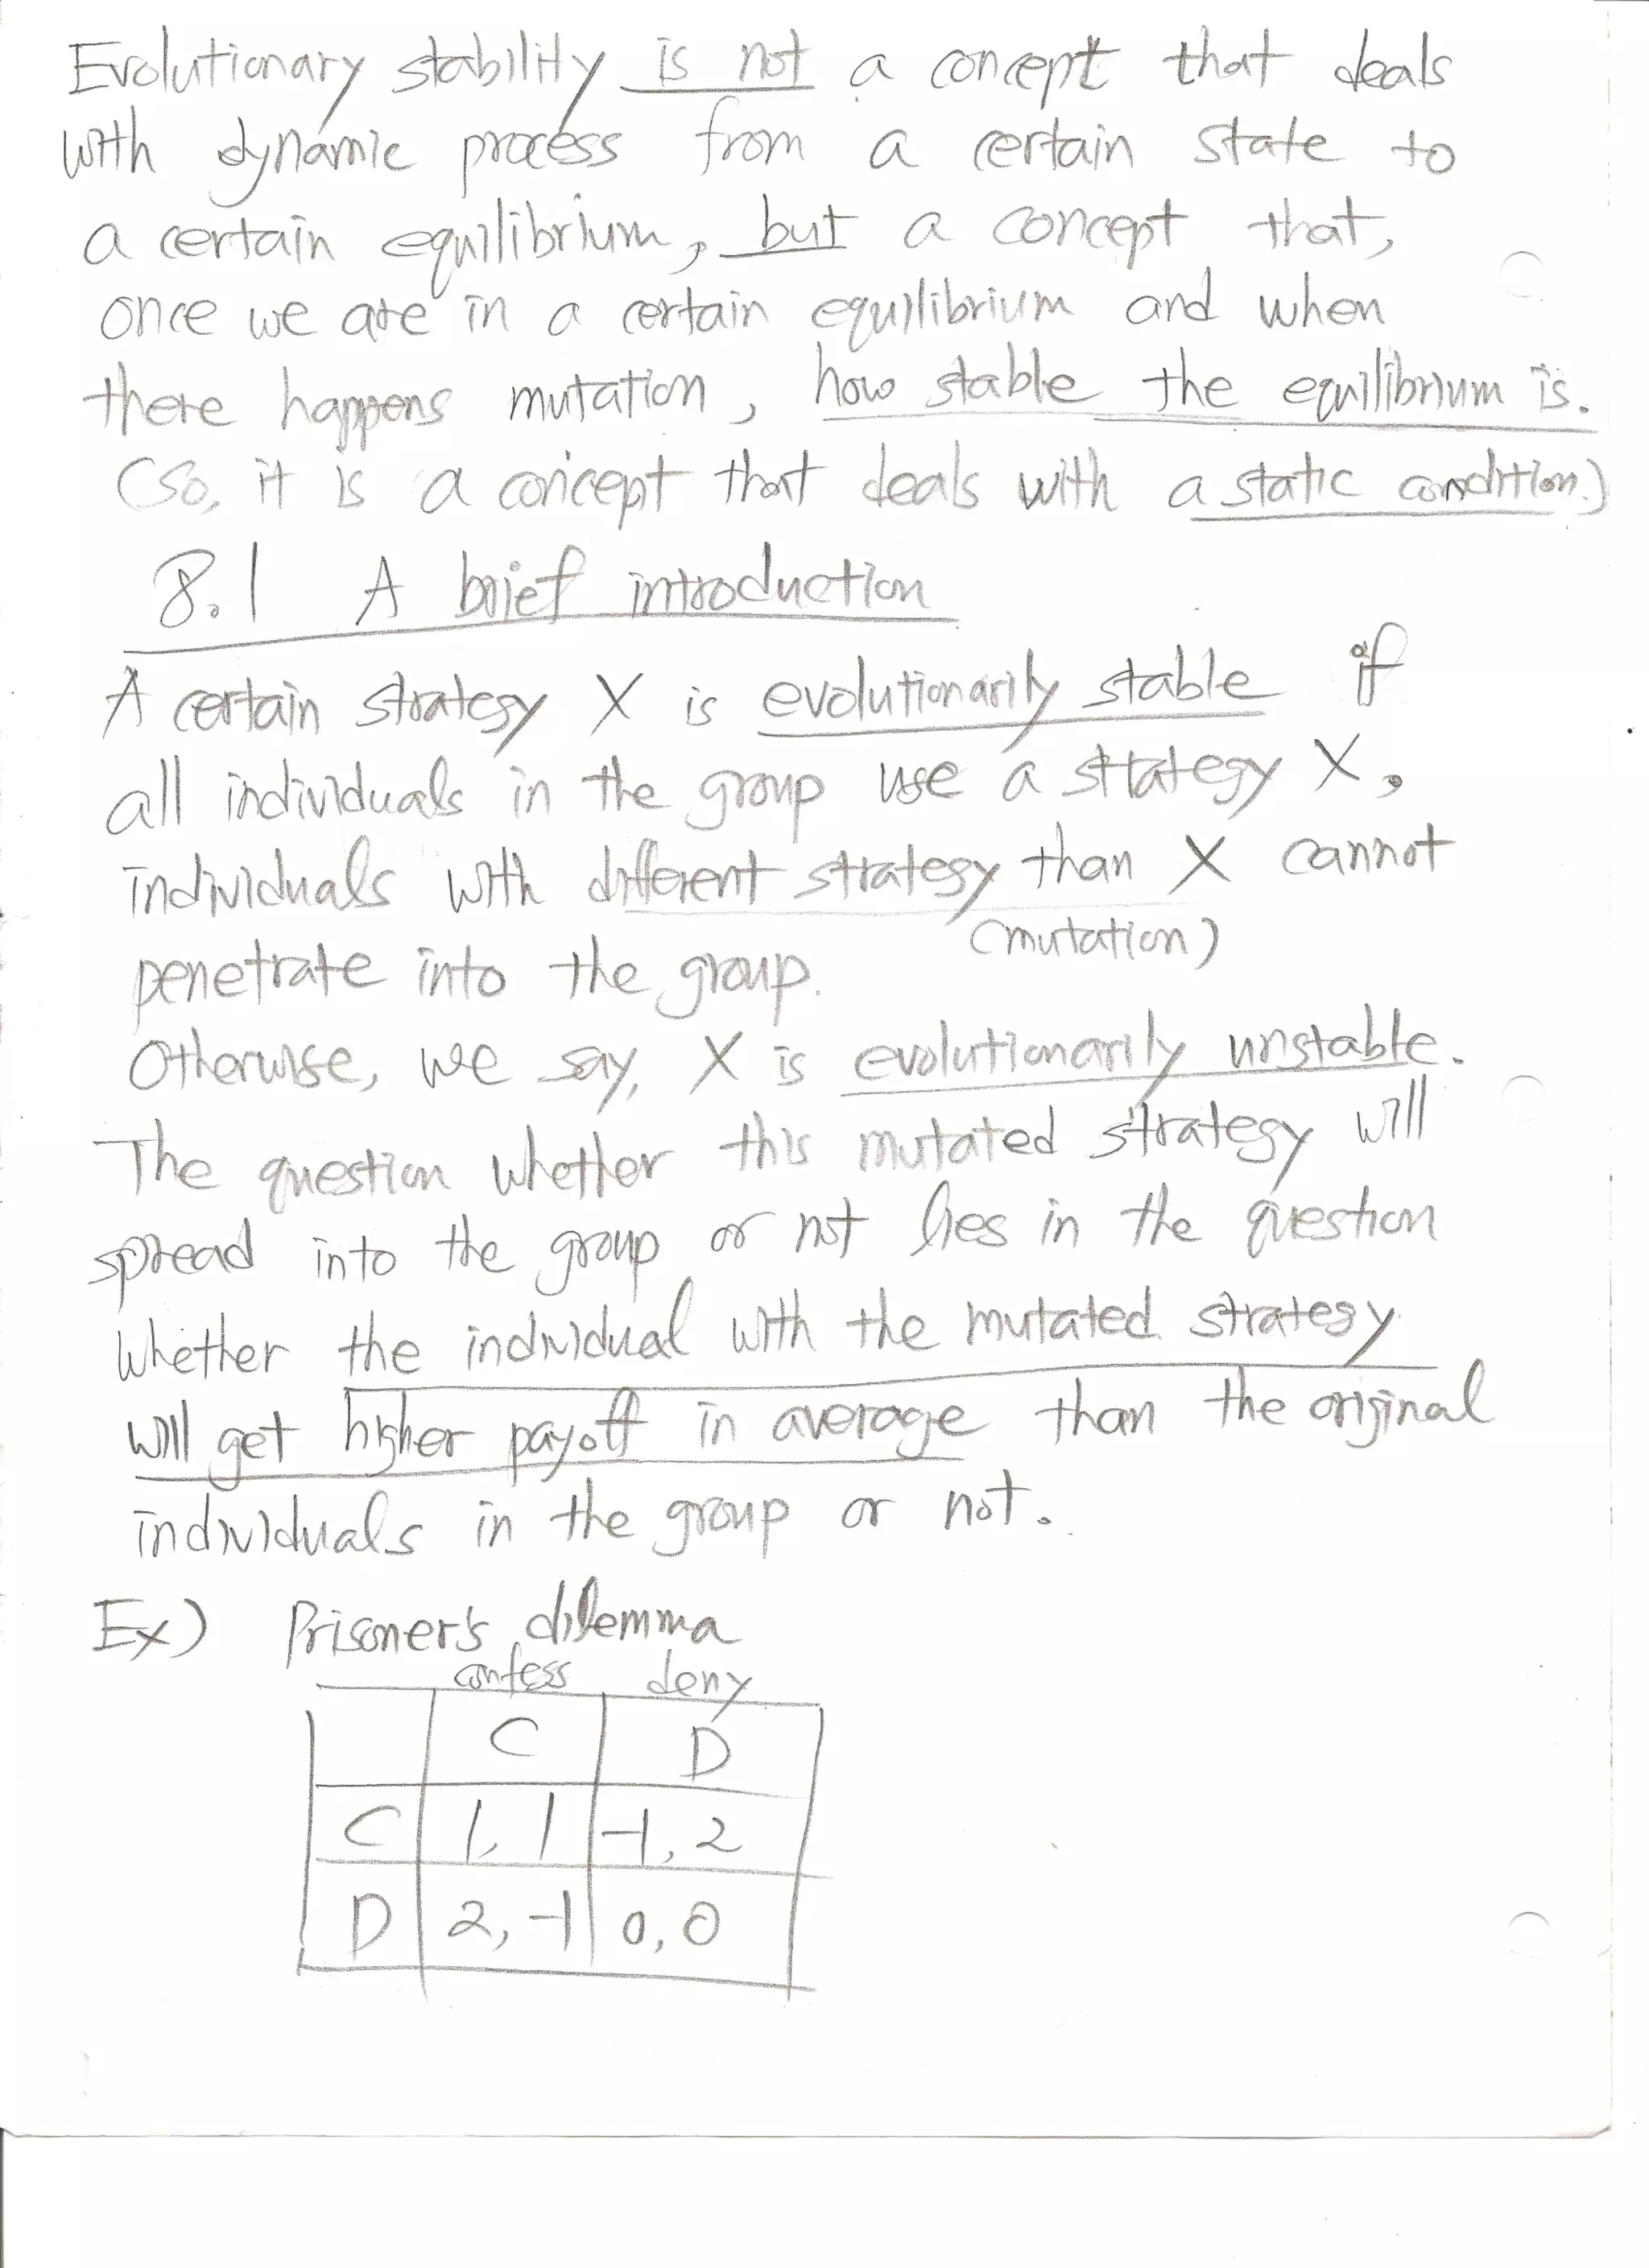 Evolutionary stability is not a concept that deals
with dynamic process from a certain state to
a certain equilibrium, but a concept that,
once we are in a certain equilibrium and when
there happens mutation, how stable the equilibrium is.
(So, it is a concept that deals with a static condition.)
8.1 A brief introduction
A certain strategy X is evolutionarily stable if
all individuals in the group use a strategy X,
individuals with different strategy than X cannot
(mutation)
penetrate into the group.
Otherwise, we say, X is evolutionarily unstable.
The question whether this mutated strategy will
spread into the group or not lies in the question
whether the individual with the mutated strategy
will get higher payoff in average than the original
individuals in the group or not.
Ex) Prisoner's dilemma
confess deny
C D
C 1, 1 -1, 2
D 2, -1 0, 0